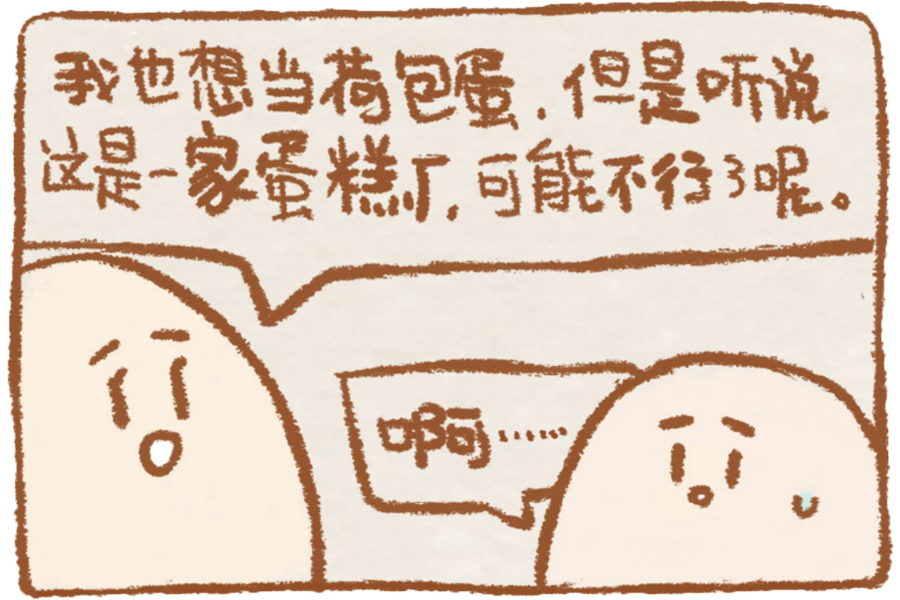 我也想当荷包蛋，但是听说
这是一家蛋糕厂，可能不行了呢。
啊……